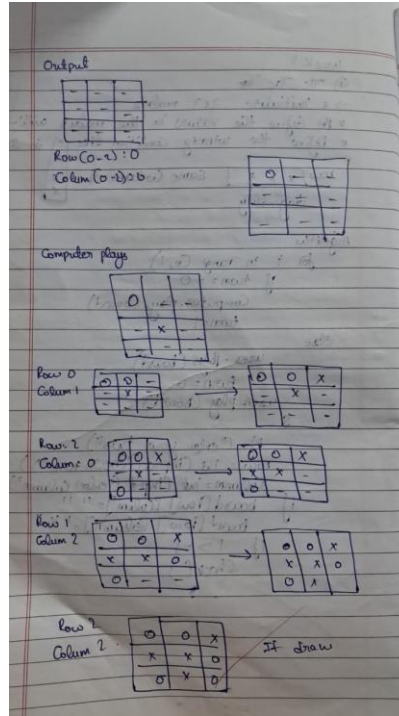 Output
- - -
- - -
- - -
Row (0-2) : 0
Colum (0-2) : 0
O - -
- - -
- - -
Computer plays
O - -
- x -
- - -
Row 0
Colum 1
O O -
- x -
- - -
→
O O x
- x -
- - -
Row: 2
Colum: 0
O O x
- x -
O - -
→
O O x
x x -
O - -
Row 1
Colum 2
O O x
x x O
O - -
→
O O x
x x O
O x
Row 2
Colum 2
O O x
x x O
O x O
If draw